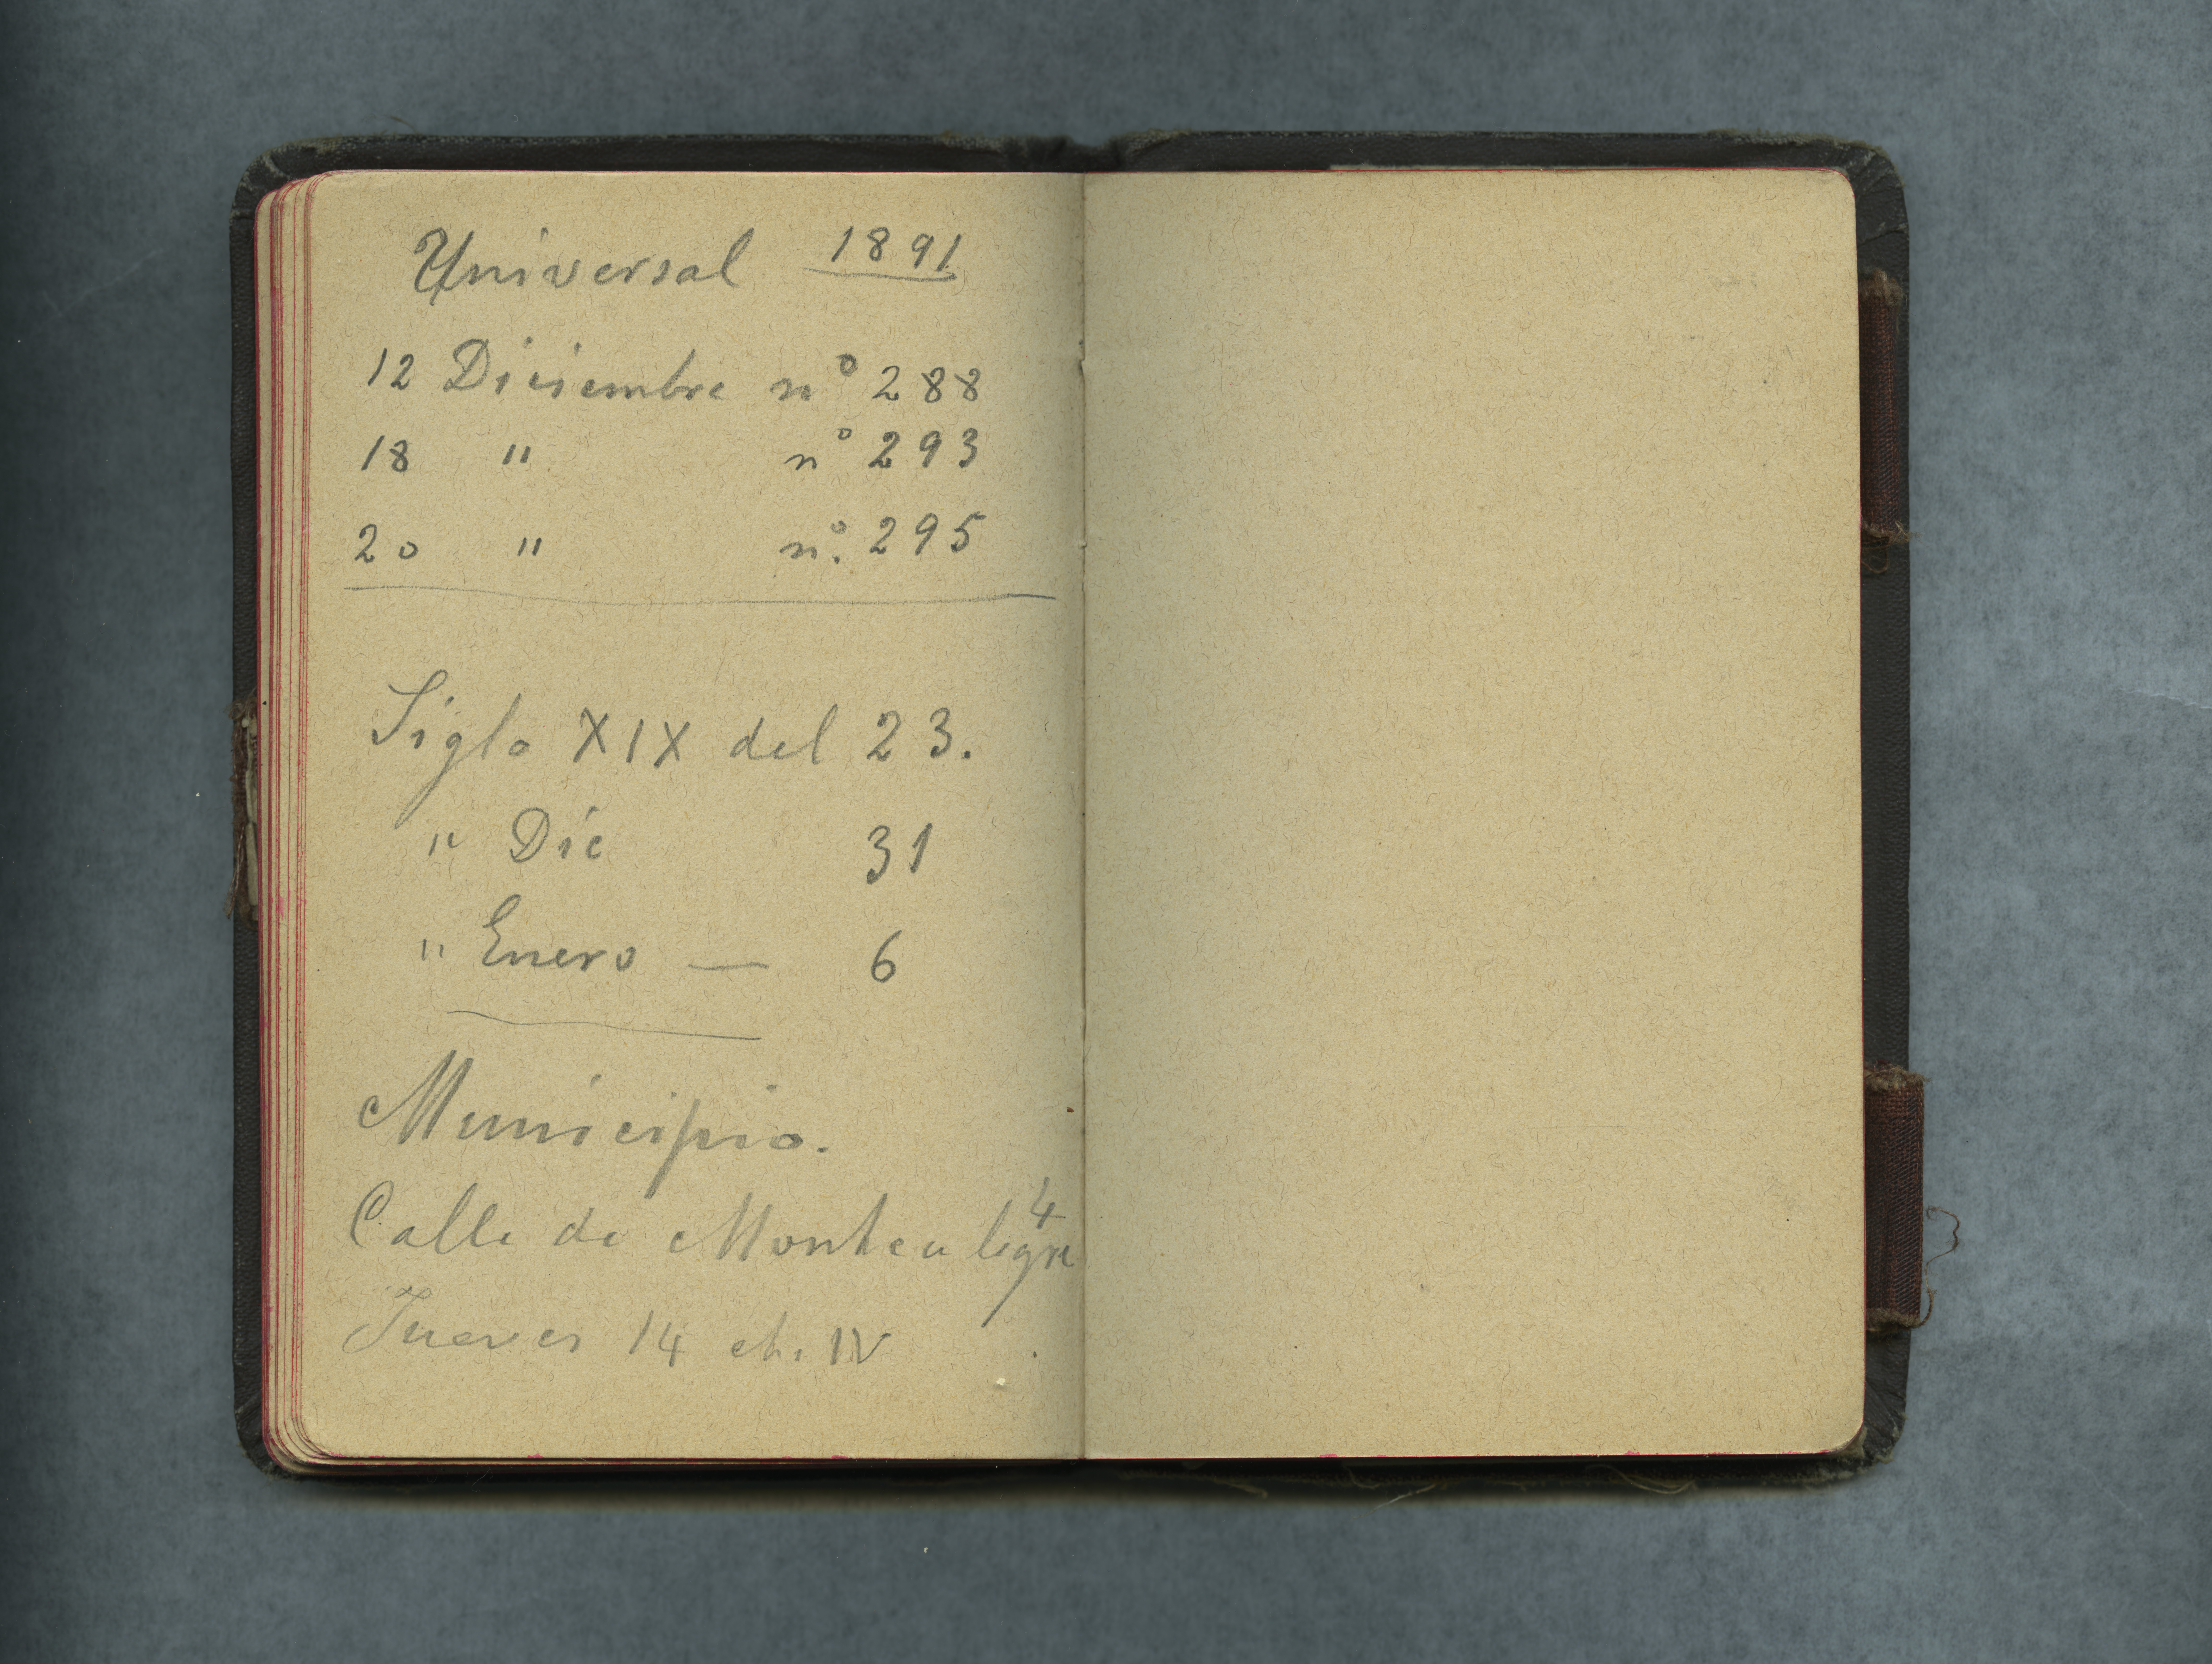 Universal 1891
12 Diciembre nº 288
18 " nº 293
20 " nº. 295
Siglo XIX del 23.
" Dic 31
" Enero — 6
Municipio.
Calle de Montealegre 4
Jueves 14 ch. IV